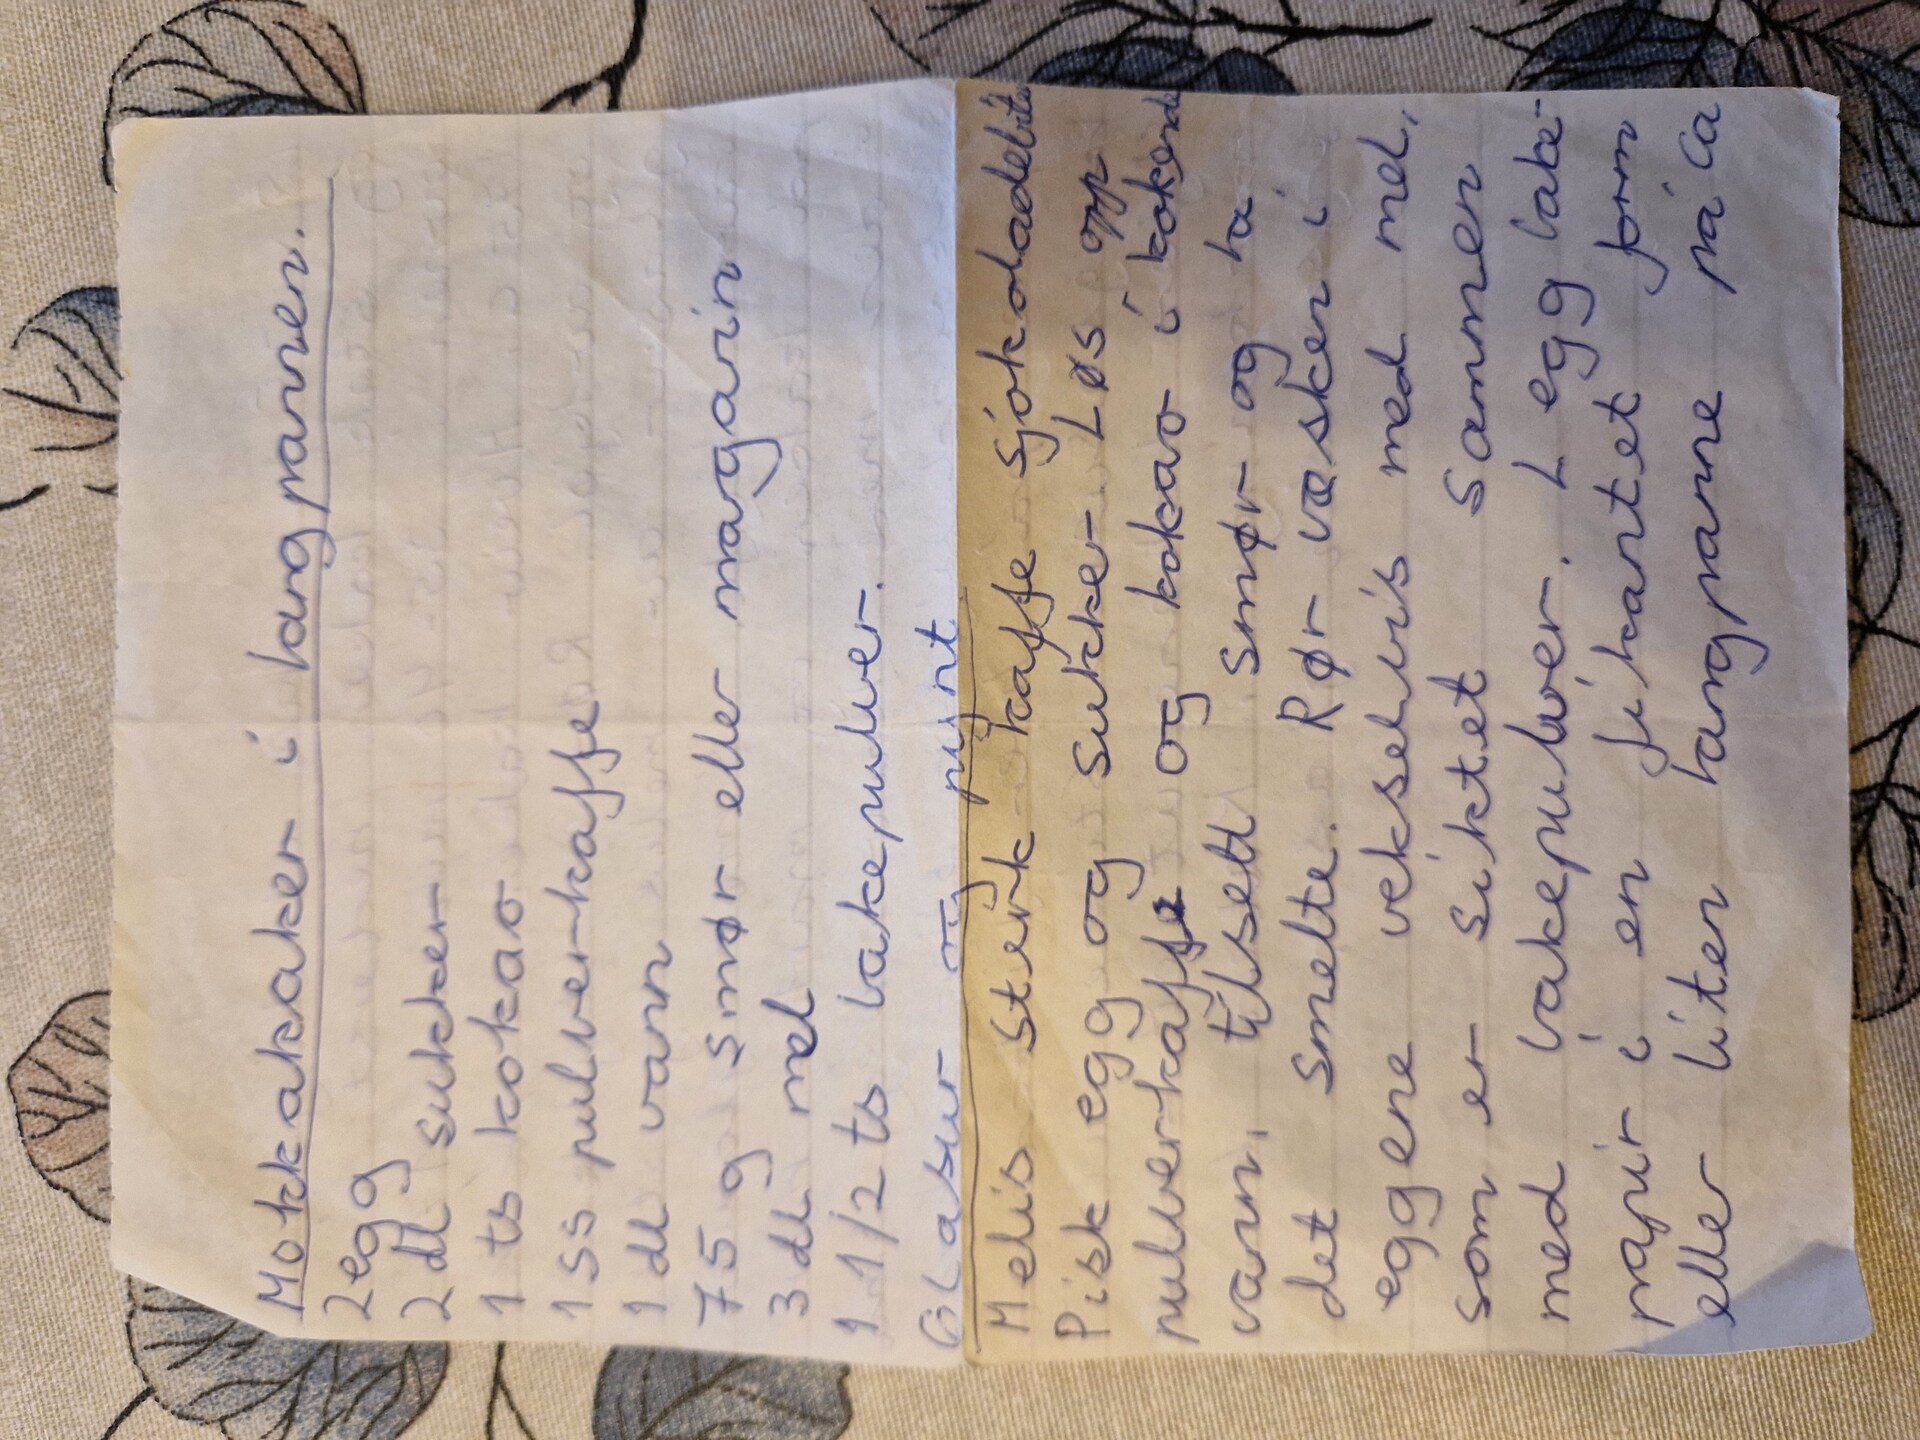 Mokkakaker i langpannen.
2egg
2 dl sukker
1 ts kokao
1 ss pulverkaffe
1 dl vann
75 g smør eller magarin
3 dl mel
1 1/2 ts bakepulver.
Glasur og pynt.
Melis sterk kaffe sjokoladebiter
Pisk egg og sukker. Løs opp
pulverkaffe og kokao i kokende
vann, tilsett smør og la
det smelte. Rør væsken i
eggene vekselvis med mel,
som er siktet sammen
med bakepulver. Legg bake-
papir i en fikantet form
eller liten langpanne på ca